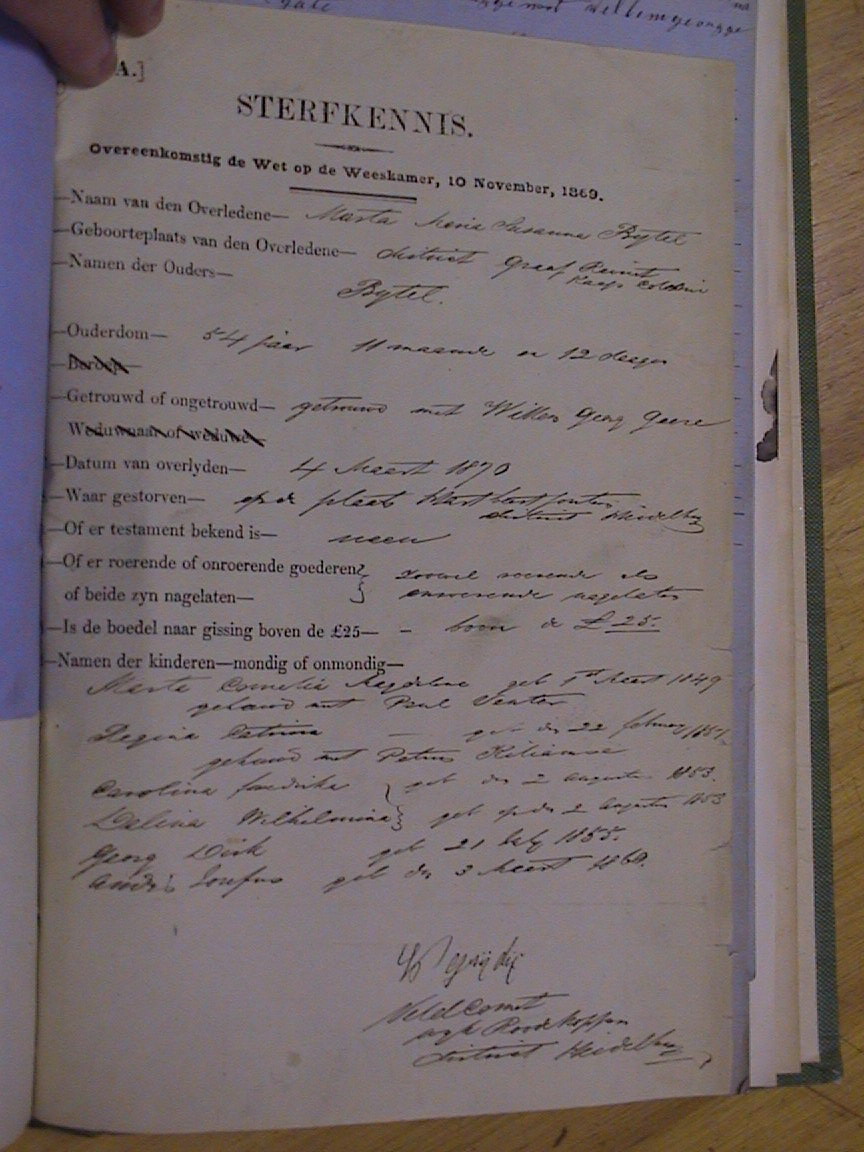 A.]
STERFKENNIS.
Overeenkomstig de Wet op de Weeskamer, 10 November, 1869.
—Naam van den Overledene— Marta Maria Susanna Bytel
—Geboorteplaats van den Overledene— district Graaf Reinet
Kaaps Colonie
—Namen der Ouders—
Bytel.
—Ouderdom— 54 jaar 11 maande en 12 dagen
—Beroep—
—Getrouwd of ongetrouwd— getrouwd met Willem Georg
Weduwnaar of weduwe—
—Datum van overlyden— 4 Maart 1870
—Waar gestorven— op de plaats
district Heidelberg
—Of er testament bekend is— neen
—Of er roerende of onroerende goederen zoowel roerende als
of beide zyn nagelaten— onroerende nagelaten
—Is de boedel naar gissing boven de £25— - boven de £25.
—Namen der kinderen—mondig of onmondig—
Marta Cornelia Magdalena geb 1st Maart 1849
getrouwd met Paul Venter
Regina Catrina — geb den 22 february
getrouwd met Petrus
Carolina fredrika geb den 2 augustus 1853.
Wilhelmina geb op den 2 augustus 1853
Georg Dirk geb 21 July 1855.
geb den 3 Maart
Veldcornet
wyk Roodekoppen
district Heidelberg